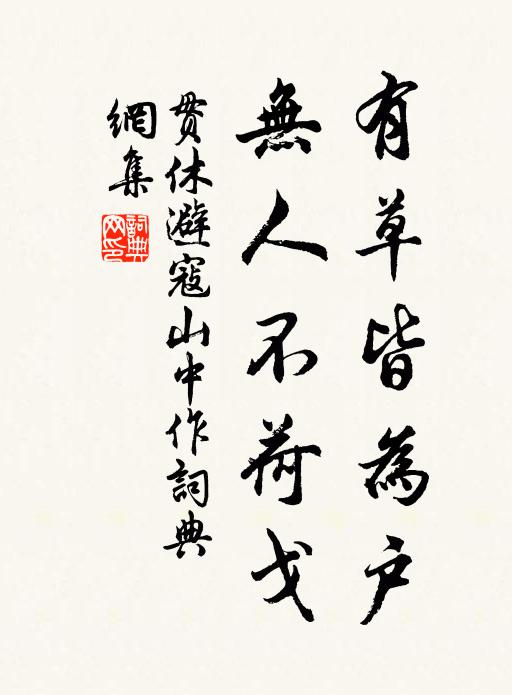 有草皆為戶
無人不荷戈
貫休避寇山中作詞典
網集
詞典
网印